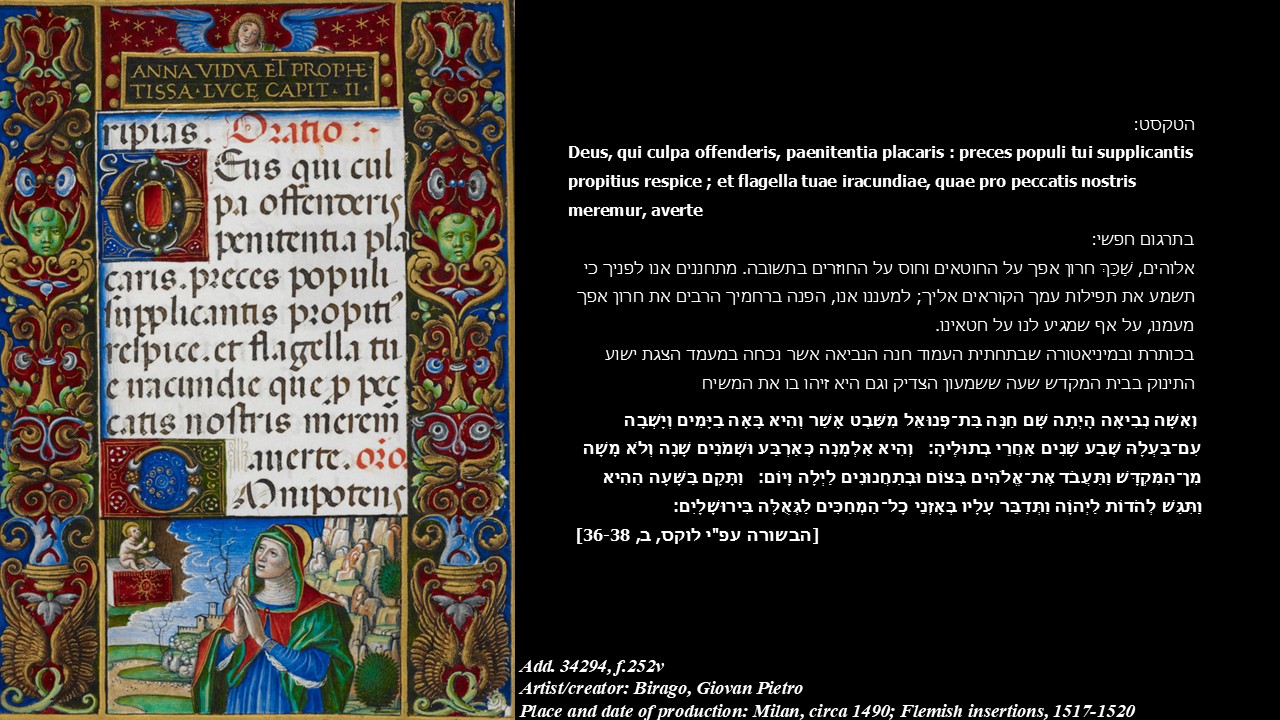 ANNA VIDVA ET PROPHE
TISSA · LVCĘ CAPIT · II ·
ripias. Oratio :·
DEus qui cul
pa offenderis
penitentia pla
caris. preces populi
supplicantis propiti⁹
respice. et flagella tu
e iracundie que p̱ pec
catis nostris merem̃
auerte. oro.
OMnipotens
הטקסט:
Deus, qui culpa offenderis, paenitentia placaris : preces populi tui supplicantis
propitius respice ; et flagella tuae iracundiae, quae pro peccatis nostris
meremur, averte
בתרגום חפשי:
אלוהים, שַׁכֵּךְ חרון אפך על החוטאים וחוס על החוזרים בתשובה. מתחננים אנו לפניך כי
תשמע את תפילות עמך הקוראים אליך; למעננו אנו, הפנה ברחמיך הרבים את חרון אפך
מעמנו, על אף שמגיע לנו על חטאינו.
בכותרת ובמיניאטורה שבתחתית העמוד חנה הנביאה אשר נכחה במעמד הצגת ישוע
התינוק בבית המקדש שעה ששמעון הצדיק וגם היא זיהו בו את המשיח
וְאִשָּׁה נְבִיאָה הָיְתָה שָׁם חַנָּה בַּת־פְּנוּאֵל מִשֵּׁבֶט אָשֵׁר וְהִיא בָּאָה בַיָּמִים וְיָשְׁבָה
עִם־בַּעְלָהּ שֶׁבַע שָׁנִים אַחֲרֵי בְתוּלֶיהָ׃ וְהִיא אַלְמָנָה כְּאַרְבַּע וּשְׁמֹנִים שָׁנָה וְלֹא מָשָׁה
מִן־הַמִּקְדָּשׁ וַתַּעֲבֹד אֶת־אֱלֹהִים בְּצוֹם וּבְתַחֲנוּנִים לַיְלָה וָיוֹם׃ וַתָּקָם בַּשָּׁעָה הַהִיא
וַתִּגַּשׁ לְהֹדוֹת לַיהוָֹה וַתְּדַבֵּר עָלָיו בְּאָזְנֵי כָל־הַמְחַכִּים לַגְּאֻלָּה בִּירוּשָׁלָיִם׃
[הבשורה עפ"י לוקס, ב, 36-38]
Add. 34294, f.252v
Artist/creator: Birago, Giovan Pietro
Place and date of production: Milan, circa 1490; Flemish insertions, 1517-1520